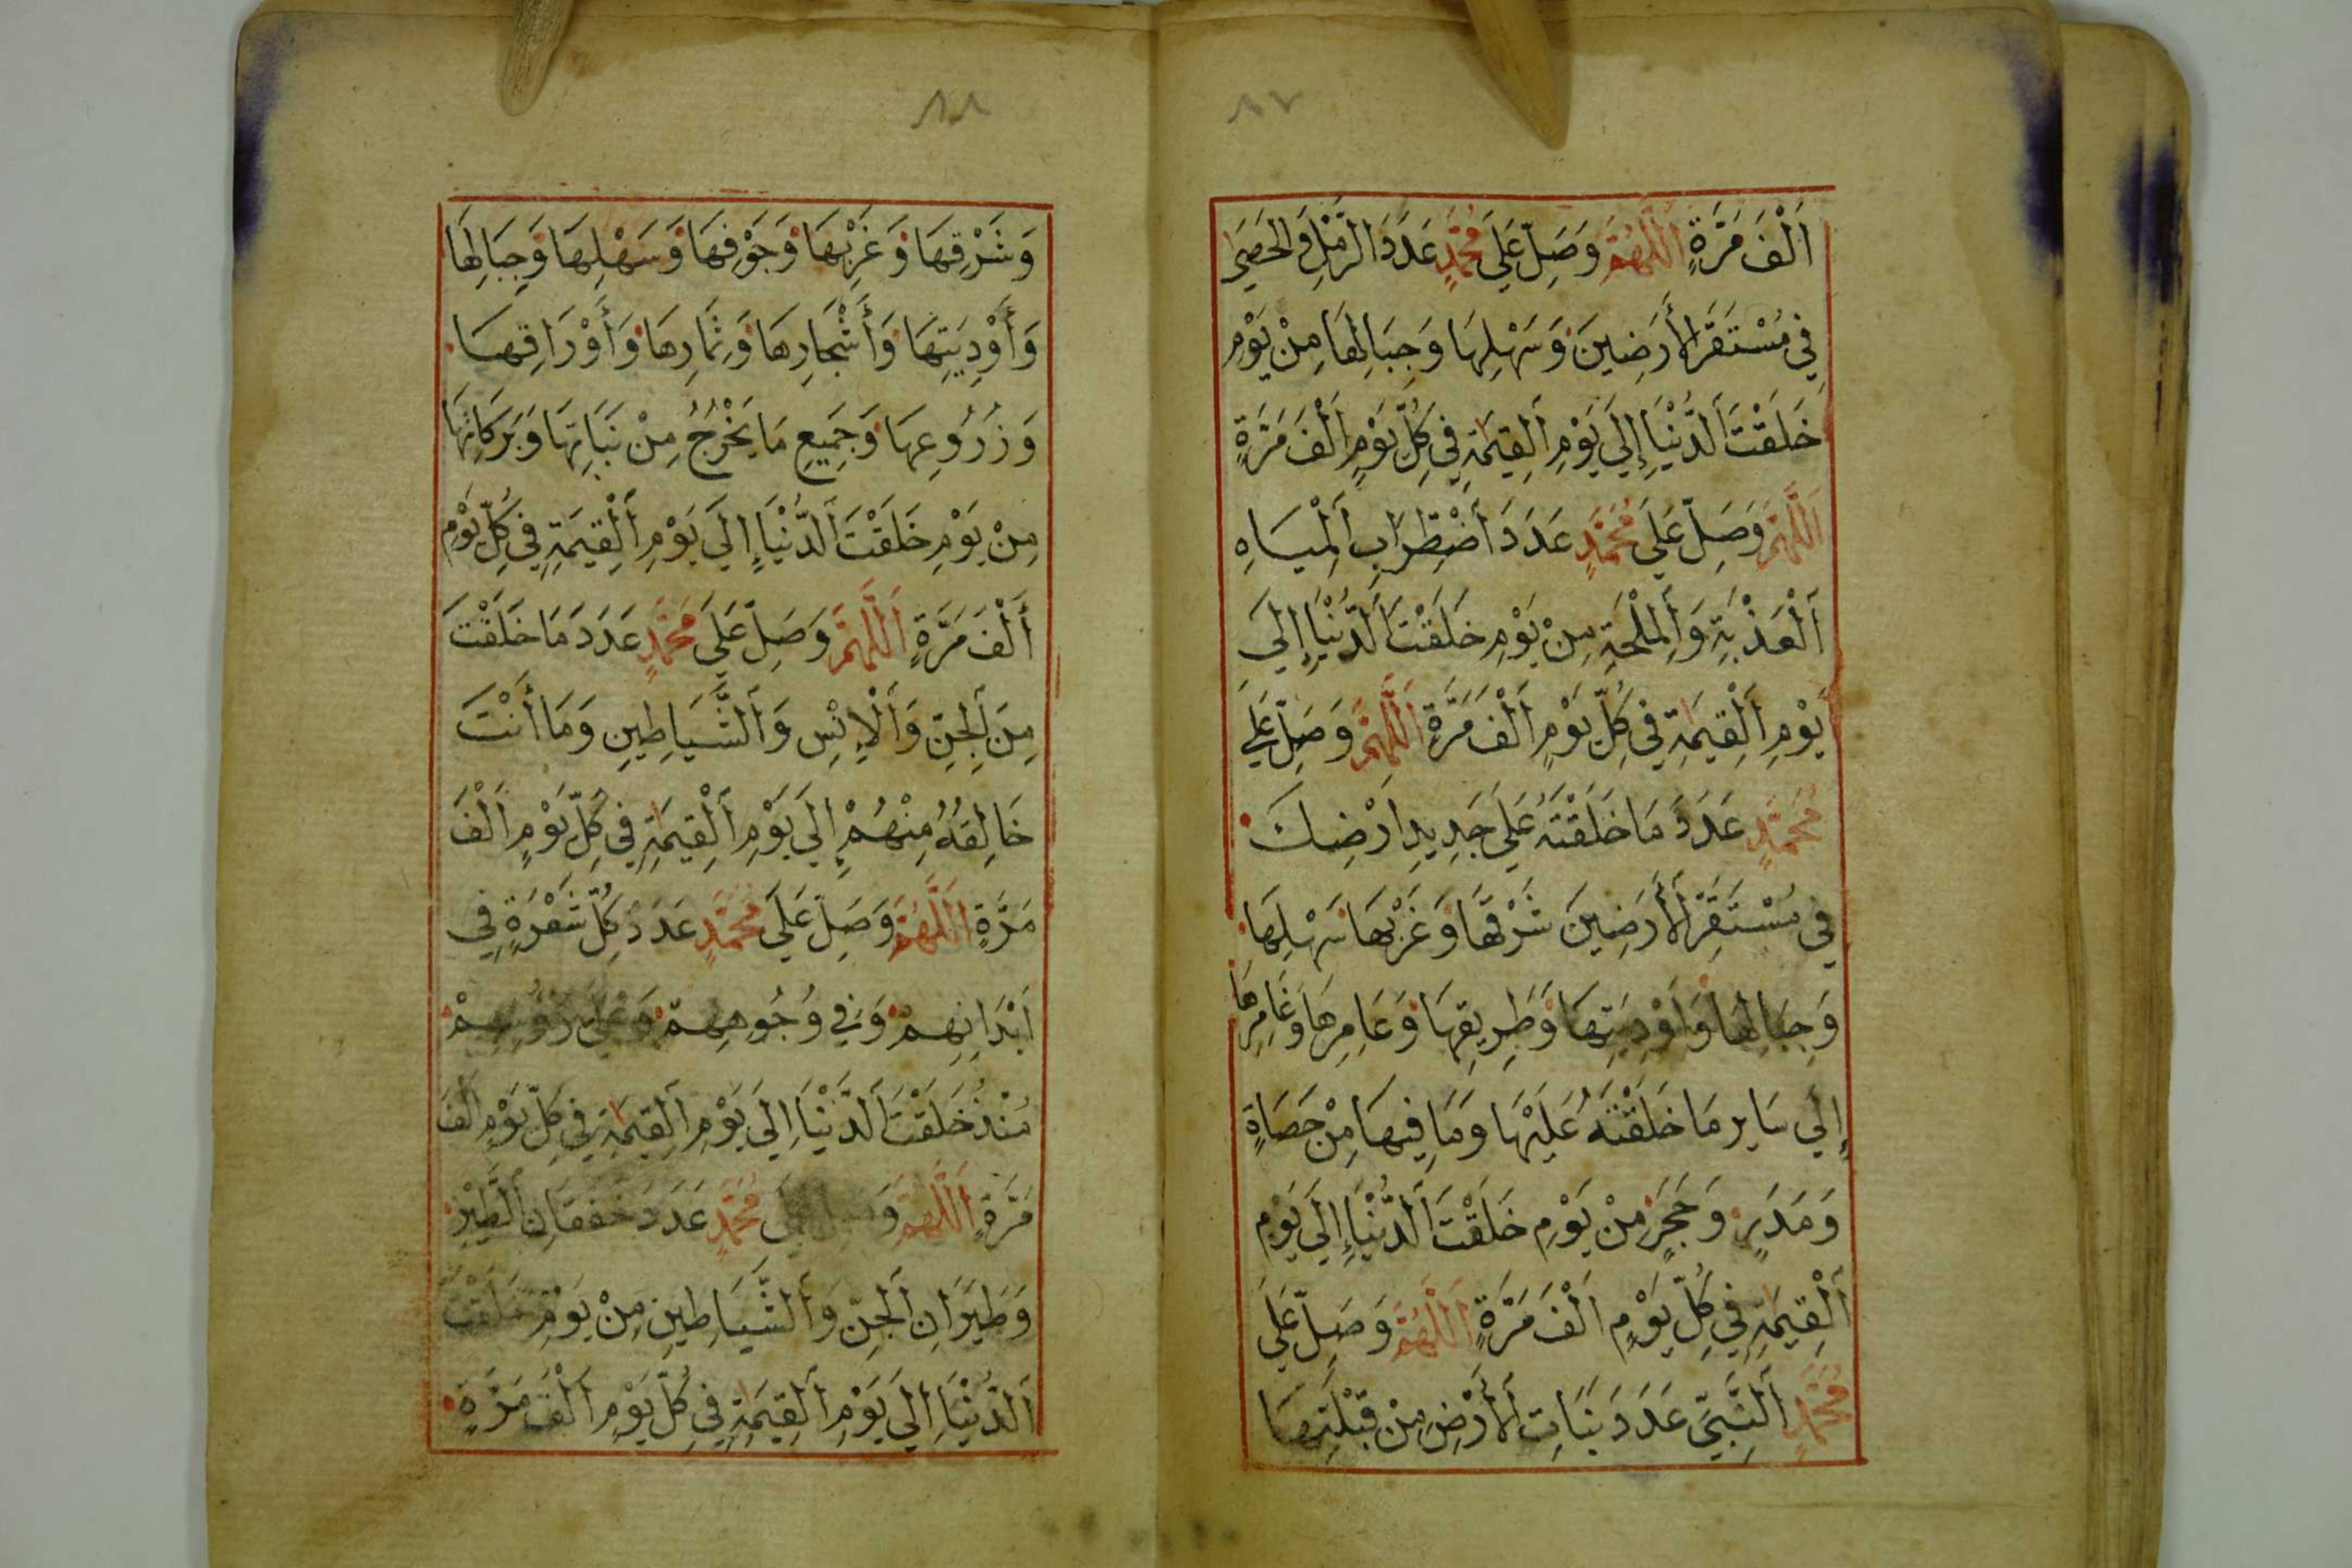 ٨٧
أَلْفَ مَرَّةٍ اَللَّهُمَّ وَصَلِّ عَلَى مُحَمَّدٍ عَدَدَ الرَّمْلِ وَالْحَصَى
فِي مُسْتَقَرِّ الْأَرَضِينَ وَسَهْلِهَا وَجِبَالِهَا مِنْ يَوْمِ
خَلَقْتَ اَلدُّنْيَا إِلَى يَوْمِ اَلْقِيٰمَةِ فِي كُلِّ يَوْمٍ أَلْفَ مَرَّةٍ
اَللَّهُمَّ وَصَلِّ عَلَى مُحَمَّدٍ عَدَدَ اَضْطِرَابِ اَلْمِيَاهِ
اَلْعَذْبَةِ وَاَلْمِلْحَةِ مِنْ يَوْمِ خَلَقْتَ اَلدُّنْيَا إِلَى
يَوْمِ اَلْقِيٰمَةِ فِي كُلِّ يَوْمٍ أَلْفَ مَرَّةٍ اَللَّهُمَّ وَصَلِّ عَلَى
مُحَمَّدٍ عَدَدَ مَا خَلَقْتَهُ عَلَى جَدِيدِ اَرْضِكَ
فِي مُسْتَقَرِّ الْأَرَضِينَ شَرْقِهَا وَغَرْبِهَا سَهْلِهَا
وَجِبَالِهَا وَأَوْدِيَتِهَا وَطَرِيقِهَا وَعَامِرِهَا وَغَامِرِهَا
إِلَى سَايِرِ مَا خَلَقْتَهُ عَلَيْهَا وَمَا فِيهَا مِنْ حَصَاةٍ
وَمَدَرٍ وَحَجَرٍ مِنْ يَوْمِ خَلَقْتَ اَلدُّنْيَا إِلَى يَوْمِ
اَلْقِيٰمَةِ فِي كُلِّ يَوْمٍ أَلْفَ مَرَّةٍ اَللَّهُمَّ وَصَلِّ عَلَى
مُحَمَّدٍ اَلنَّبِيِّ عَدَدَ نَبَاتِ الْأَرْضِ مِنْ قِبْلَتِهَا
٨٨
وَشَرْقِهَا وَغَرْبِهَا وَجَوْفِهَا وَسَهْلِهَا وَجِبَالِهَا
وَأَوْدِيَتِهَا وَأَشْجَارِهَا وَثِمَارِهَا وَأَوْرَاقِهَا
وَزُرُوعِهَا وَجَمِيعِ مَا يَخْرُجُ مِنْ نَبَاتِهَا وَبَرَكَاتِهَا
مِنْ يَوْمِ خَلَقْتَ اَلدُّنْيَا إِلَى يَوْمِ اَلْقِيٰمَةِ فِي كُلِّ يَوْمٍ
أَلْفَ مَرَّةٍ اَللَّهُمَّ وَصَلِّ عَلَى مُحَمَّدٍ عَدَدَ مَا خَلَقْتَ
مِنَ اَلْجِنِّ وَاَلْإِنْسِ وَاَلشَّيَاطِينِ وَمَا أَنْتَ
خَالِقُهُ مِنْهُمْ إِلَى يَوْمِ اَلْقِيٰمَةِ فِي كُلِّ يَوْمٍ أَلْفَ
مَرَّةٍ اَللَّهُمَّ وَصَلِّ عَلَى مُحَمَّدٍ عَدَدَ كُلِّ شَعْرَةٍ فِي
اَبْدَانِهِمْ وَفِي وُجُوهِهِمْ وَعَلَى رُؤُسِهِمْ
مُنْذُ خَلَقْتَ اَلدُّنْيَا إِلَى يَوْمِ اَلْقِيٰمَةِ فِي كُلِّ يَوْمٍ أَلْفَ
مَرَّةٍ اَللَّهُمَّ وَصَلِّ عَلَى مُحَمَّدٍ عَدَدَ خَفَقَانِ اَلطَّيْرِ
وَطَيَرَانِ اَلْجِنِّ وَاَلشَّيَاطِينِ مِنْ يَوْمِ خَلَقْتَ
اَلدُّنْيَا إِلَى يَوْمِ اَلْقِيٰمَةِ فِي كُلِّ يَوْمٍ أَلْفَ مَرَّةٍ